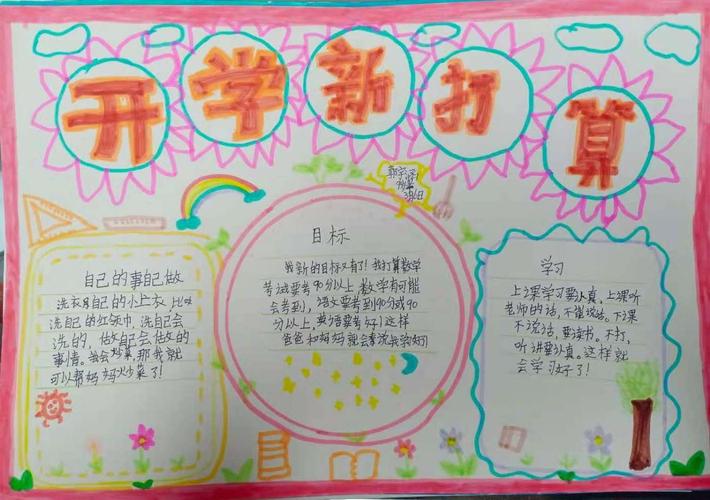 开学新打算
3月6日
自己的事自己做
洗衣服自己的小上衣 比如
洗自己的红领巾,洗自己会
洗的,做自己会做的
事情。我会炒菜,那我就
可以帮妈妈炒菜了!
目标
我新的目标又有了!我打算数学
考试要考90分以上,数学有可能
会考到,语文要考到90分或90
分以上,英语要考好!这样
爸爸和妈妈就会夸说我学的好了
学习
上课学习要认真,上课听
老师的话,不能说话。下课
不说话,要读书。不打,
听讲要认真。这样就
会学习好了!